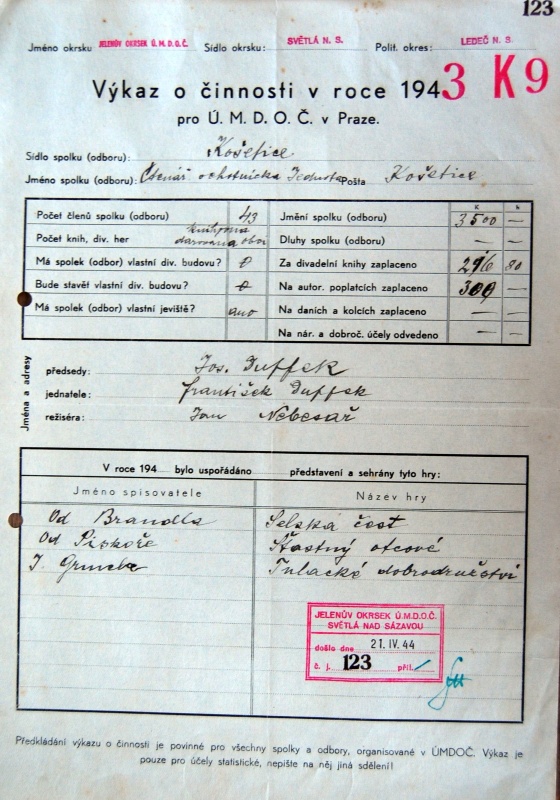 123
Jméno okrsku JELENŮV OKRSEK Ú.M.D.O.Č. Sídlo okrsku: SVĚTLÁ N. S. Polit. okres: LEDEČ N. S.
Výkaz o činnosti v roce 1943 K9
pro Ú. M. D. O. Č. v Praze.
Sídlo spolku (odboru): Košetice
Jméno spolku (odboru): Čtenář ochotnická Jednota Pošta Košetice
K h
Počet členů spolku (odboru) 43 Jmění spolku (odboru) 3500 —
Počet knih, div. her knihovna darovana obci Dluhy spolku (odboru) — —
Má spolek (odbor) vlastní div. budovu? 0 Za divadelní knihy zaplaceno 296 80
Bude stavět vlastní div. budovu? 0 Na autor. poplatcích zaplaceno 300 —
Má spolek (odbor) vlastní jeviště? ano Na daních a kolcích zaplaceno — —
Na nár. a dobroč. účely odvedeno — —
Jména a adresy
předsedy: Jos. Duffek
jednatele: František Duffek
režiséra: Jan Nebesař
V roce 194 bylo uspořádáno představení a sehrány tyto hry:
Jméno spisovatele Název hry
Od Brandla Selská čest
Od Piskoře Šťastný otcové
J. Tulacké dobrodružství
JELENŮV OKRSEK Ú.M.D.O.Č.
SVĚTLÁ NAD SÁZAVOU
došlo dne 21. IV. 44
č. j. 123 příl. /
Předkládání výkazu o činnosti je povinné pro všechny spolky a odbory, organisované v ÚMDOČ. Výkaz je
pouze pro účely statistické, nepište na něj jiná sdělení!